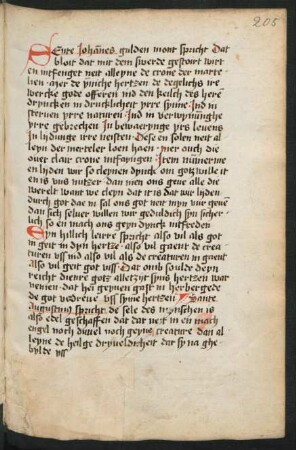 205
Sente Johānes gulden mont spricht Dat
bloit dat mit dem swerde gestort wirt
en intfenget neit alleyne de crone der marte-
lien mer de yniche hertzen de degelichs ire
wercke gode offeren ind den keilch des here
drincken in drucklicheit yrre synne Ind in
sterven yrre naturen Ind in verwynnūghe
yrre gebrechen In bewaerynge yrs levens
In lydunge irre neisten Dese en solen neit al
leyn der marteler loen haen mer ouch die
over clair crone intfangen Item nummerme
en lyden wir so cleynen druck om gotz wille it
en is uns nutzer dan men ons geve alle die
werelt want wie cleyn dat it is dat wir lyden
durch got dae in sal ons got neit myn vur geuē
dan sich selver willen wir geduldich syn sicher
lich so en mach ons geyn druck intfreden
Eyn hillich leirre spricht also vil als got
in geit in dyn hertze also vil gaent de creatu
ren uss ind also vil als de creaturen in gaent
Also vil geit got uss Dat umb soulde deyn
reicht diener gotz alletzijt syns hertzen war
nemen dat hey geynen gast in herbergede
de got verdreve uss syme hertzen Sante
Augustinus spricht de sele des mynschen is
also edel geschaffen dat dar neit in en mach
engel noch duvel noch geyne creature dan al
leyne de heilge dryveldicheit dar sy na ghe
bylde ys